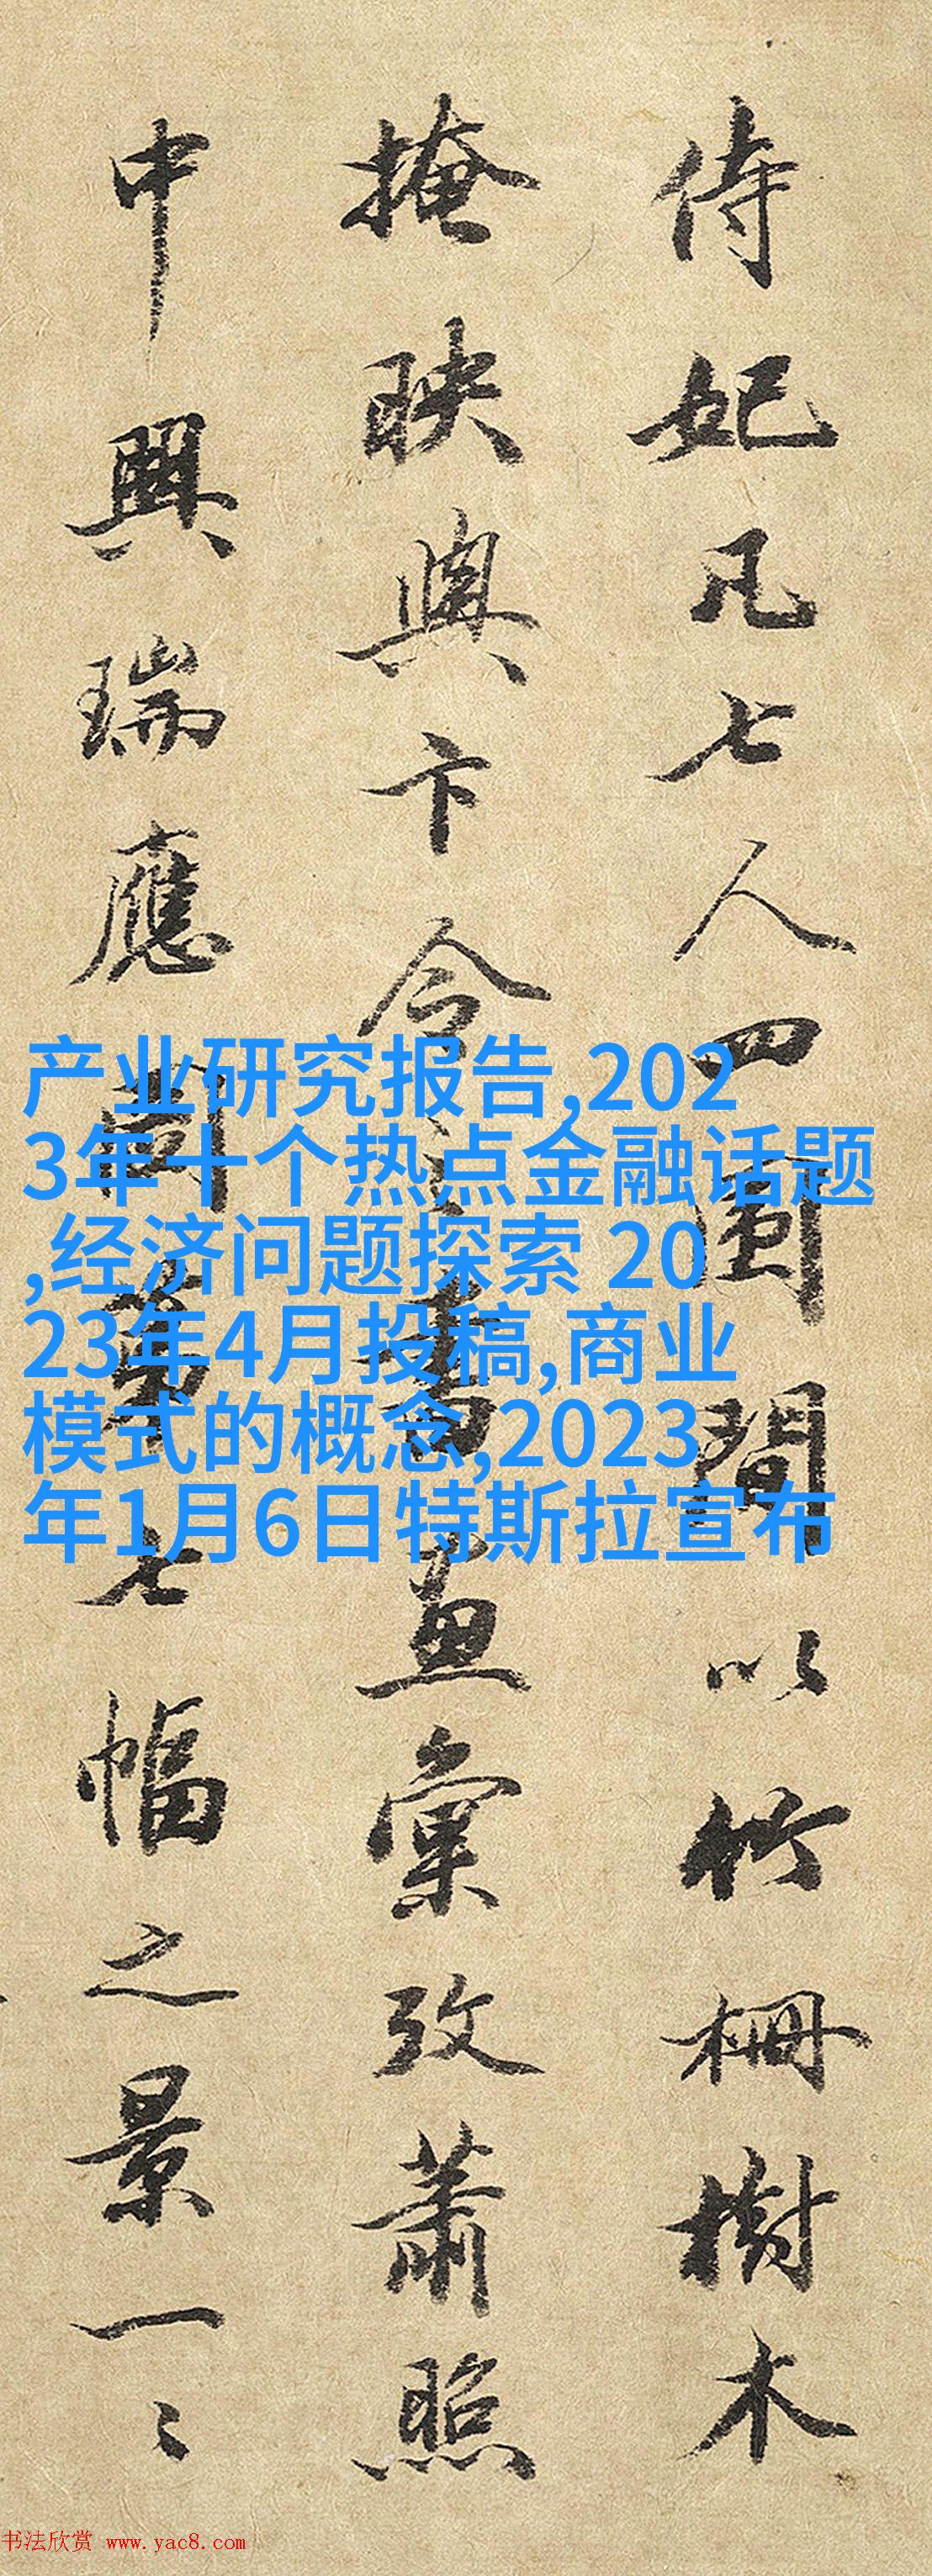 侍妃凡七人四圍間以竹柵樹木
掩映與卞令之書畫彙攷蕭照
中興瑞應圖第七幅之景一〻
产业研究报告,202
3年十个热点金融话题
,经济问题探索 20
23年4月投稿,商业
模式的概念,2023
年1月6日特斯拉宣布
书法欣赏 www.yac8.com